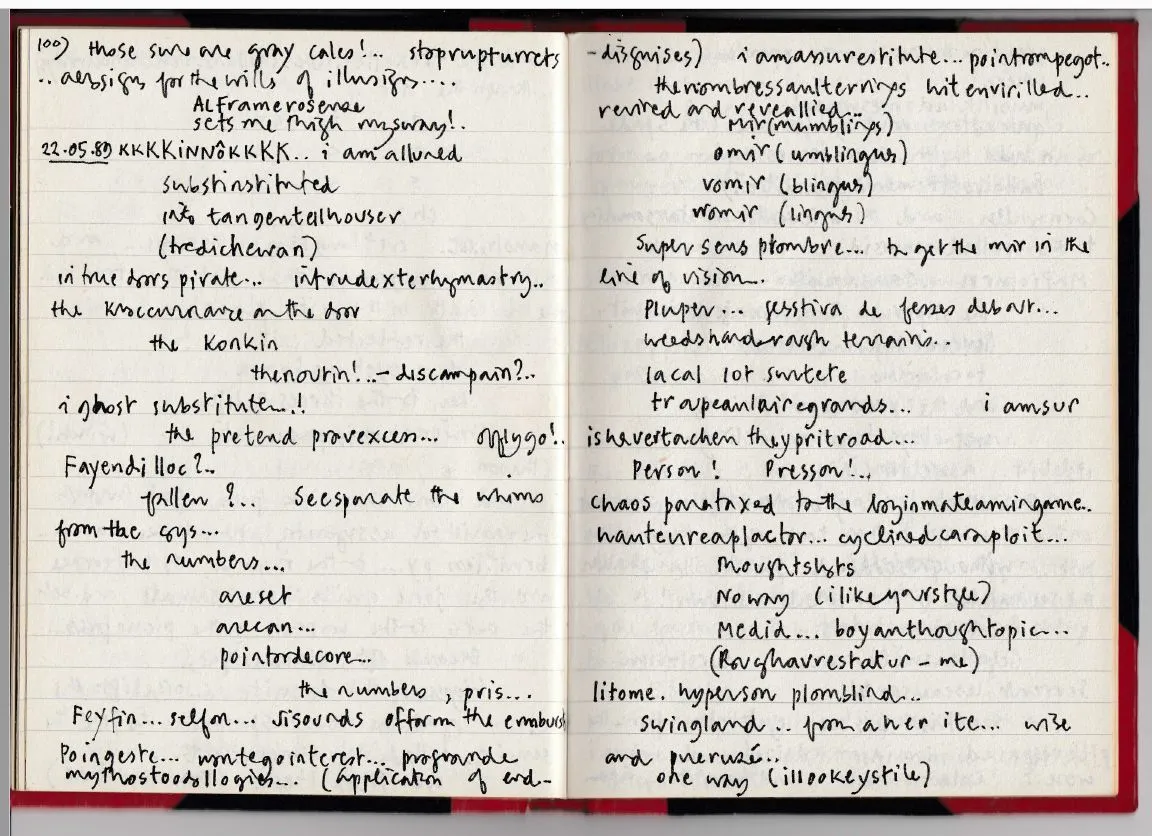 100) those sure are gray cales!.. stoprupturrets
.. aessigns for the wills of illusigns....
ALFramerosense
sets me thigh mysway!.
22.05.89 KKKKiNNôKKKK.. i am allured
substinstituted
into tangentellhouser
(tredichewan)
in true doors pirate... intrudexterhymastry..
the knoccurrance on the door
the Konkin
thenoutin!..- discampain?..
i ghost substitute...!
the pretend provexcess... offlygo!.
Fayendilloc?..
fallen ?... Seesparate the whims
from the coys...
the numbers...
areset
arecan...
pointordecore...
the numbers, pris...
Feyfin... selfon... disounds ofform the emburst
Poingeste... wontegointerest... profgrande
mythostoodsllogies... (application of end-
-disguises) i amassurestitute... pointrompegot..
thenombressaulterrings hitenvirilled..
revired and reveallied...
mir(mumblings)
omir (umblingus)
vomir (blingus)
womir (lingus)
Super sens plombre... to get the mir in the
line of vision...
Pluper... festiva de fesses debout...
weedshardrough terrains..
lacal lot surtete
trapeanlairegrounds... i amsur
ishevertachen theypritroad...
Person! Presson!..
chaos parataxed to the boyinmateamingame..
hauteureaplactor... cyclinedcaraploit...
thoughtslyts
No way (ilikeyourstyle)
Medid... boyanthoughtopic...
(Roughavrestatur - me)
litome. hyperson plomblind...
swingland .. from a her ite... wise
and pneruzé...
one way (illookeystile)